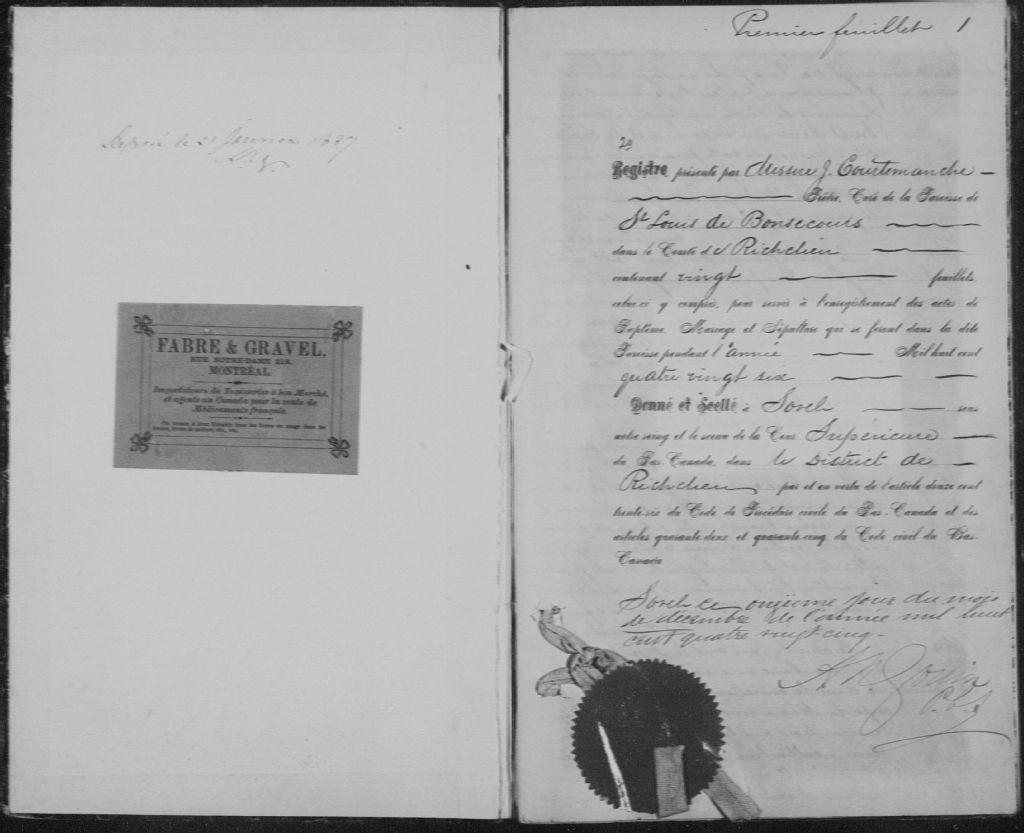 Déposé le 21 Janvier 1887
FABRE & GRAVEL,
RUE NOTRE-DAME 219.
MONTRÉAL.
Importateurs de Tapisseries à bon Marché,
et agents au Canada pour la vente de
Médicaments français.
On trouve à leur librairie tous les livres en usage dans les
Premier feuillet 1
Registre présenté par Messire J. Courtemanche
Prêtre, Curé de la Paroisse de
St Louis de Bonsecours
dans le Comté de Richelieu
contenant vingt feuillets
celui-ci y compris, pour servir à l'enregistrement des actes de
Baptême, Mariage et Sépulture qui se feront dans la dite
Paroisse pendant l'année Mil huit cent
quatre vingt six
Donné et Scellé à Sorel sous
notre seing et le sceau de la Cour Supérieure
du Bas-Canada, dans le District de
Richelieu, par et en vertu de l'article douze cent
trente-six du Code de Procédure civile du Bas-Canada et des
articles quarante-deux et quarante-cinq du Code civil du Bas-
Canada
Sorel ce onzième jour du mois
de décembre de l'année mil huit
cent quatre vingt cinq-
A. N. Gouin
P.C.S